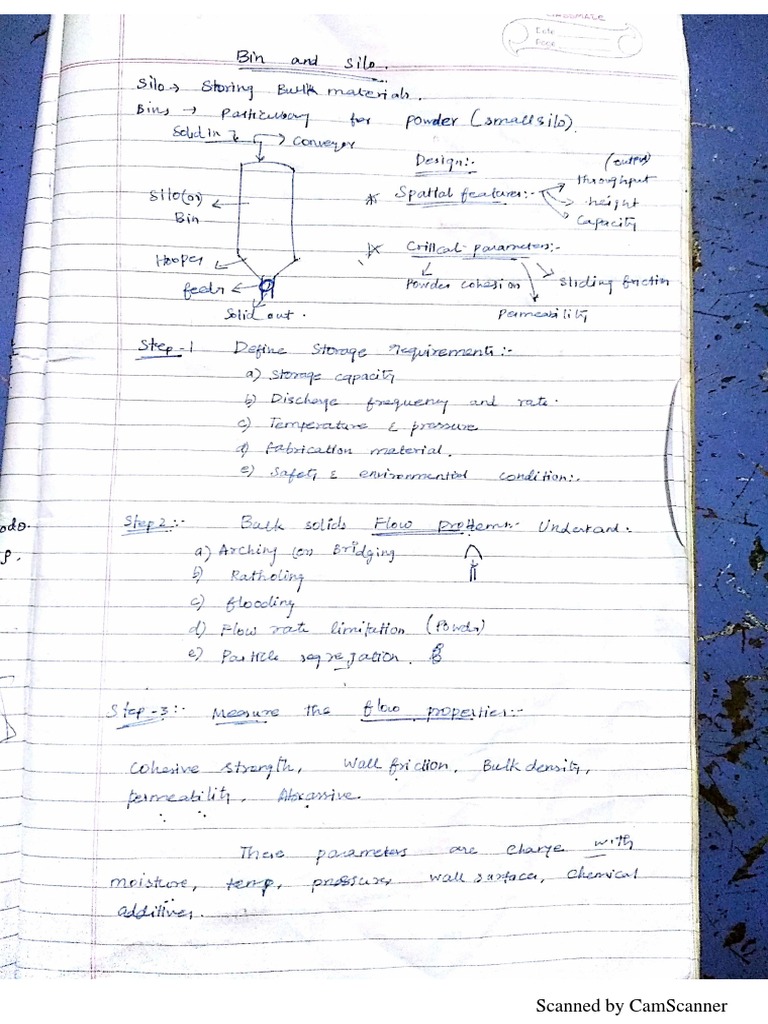 CLASSMATE
Date
Page
Bin and silo.
Silo → Storing Bulk materials.
Bins → Particulary for powder (small silo).
Solid in
Conveyor
Silo (or)
Bin
Hooper
feedr
Solid out.
Design:-
* Spatial features:-
(output)
throughput
height
Capacity
* Critical parameters:-
Powder cohesion
Sliding friction
Permeability
Step-1 Define Storage requirements:-
a) Storage capacity
b) Discharge frequency and rate.
c) Temperature & pressure
d) Fabrication material.
e) Safety & environmental condition:-
Step 2:- Bulk solids Flow problems Understand.
a) Arching (or) Bridging
b) Ratholing
c) flooding
d) Flow rate limitation (Powdr)
e) Particle segregation.
Step-3:- Measure the flow properties:-
Cohesive strength, Wall friction, Bulk density,
permeability, Abrassive.
These parameters are change with
moisture, temp, pressure, wall surface, chemical
additives.
Scanned by CamScanner